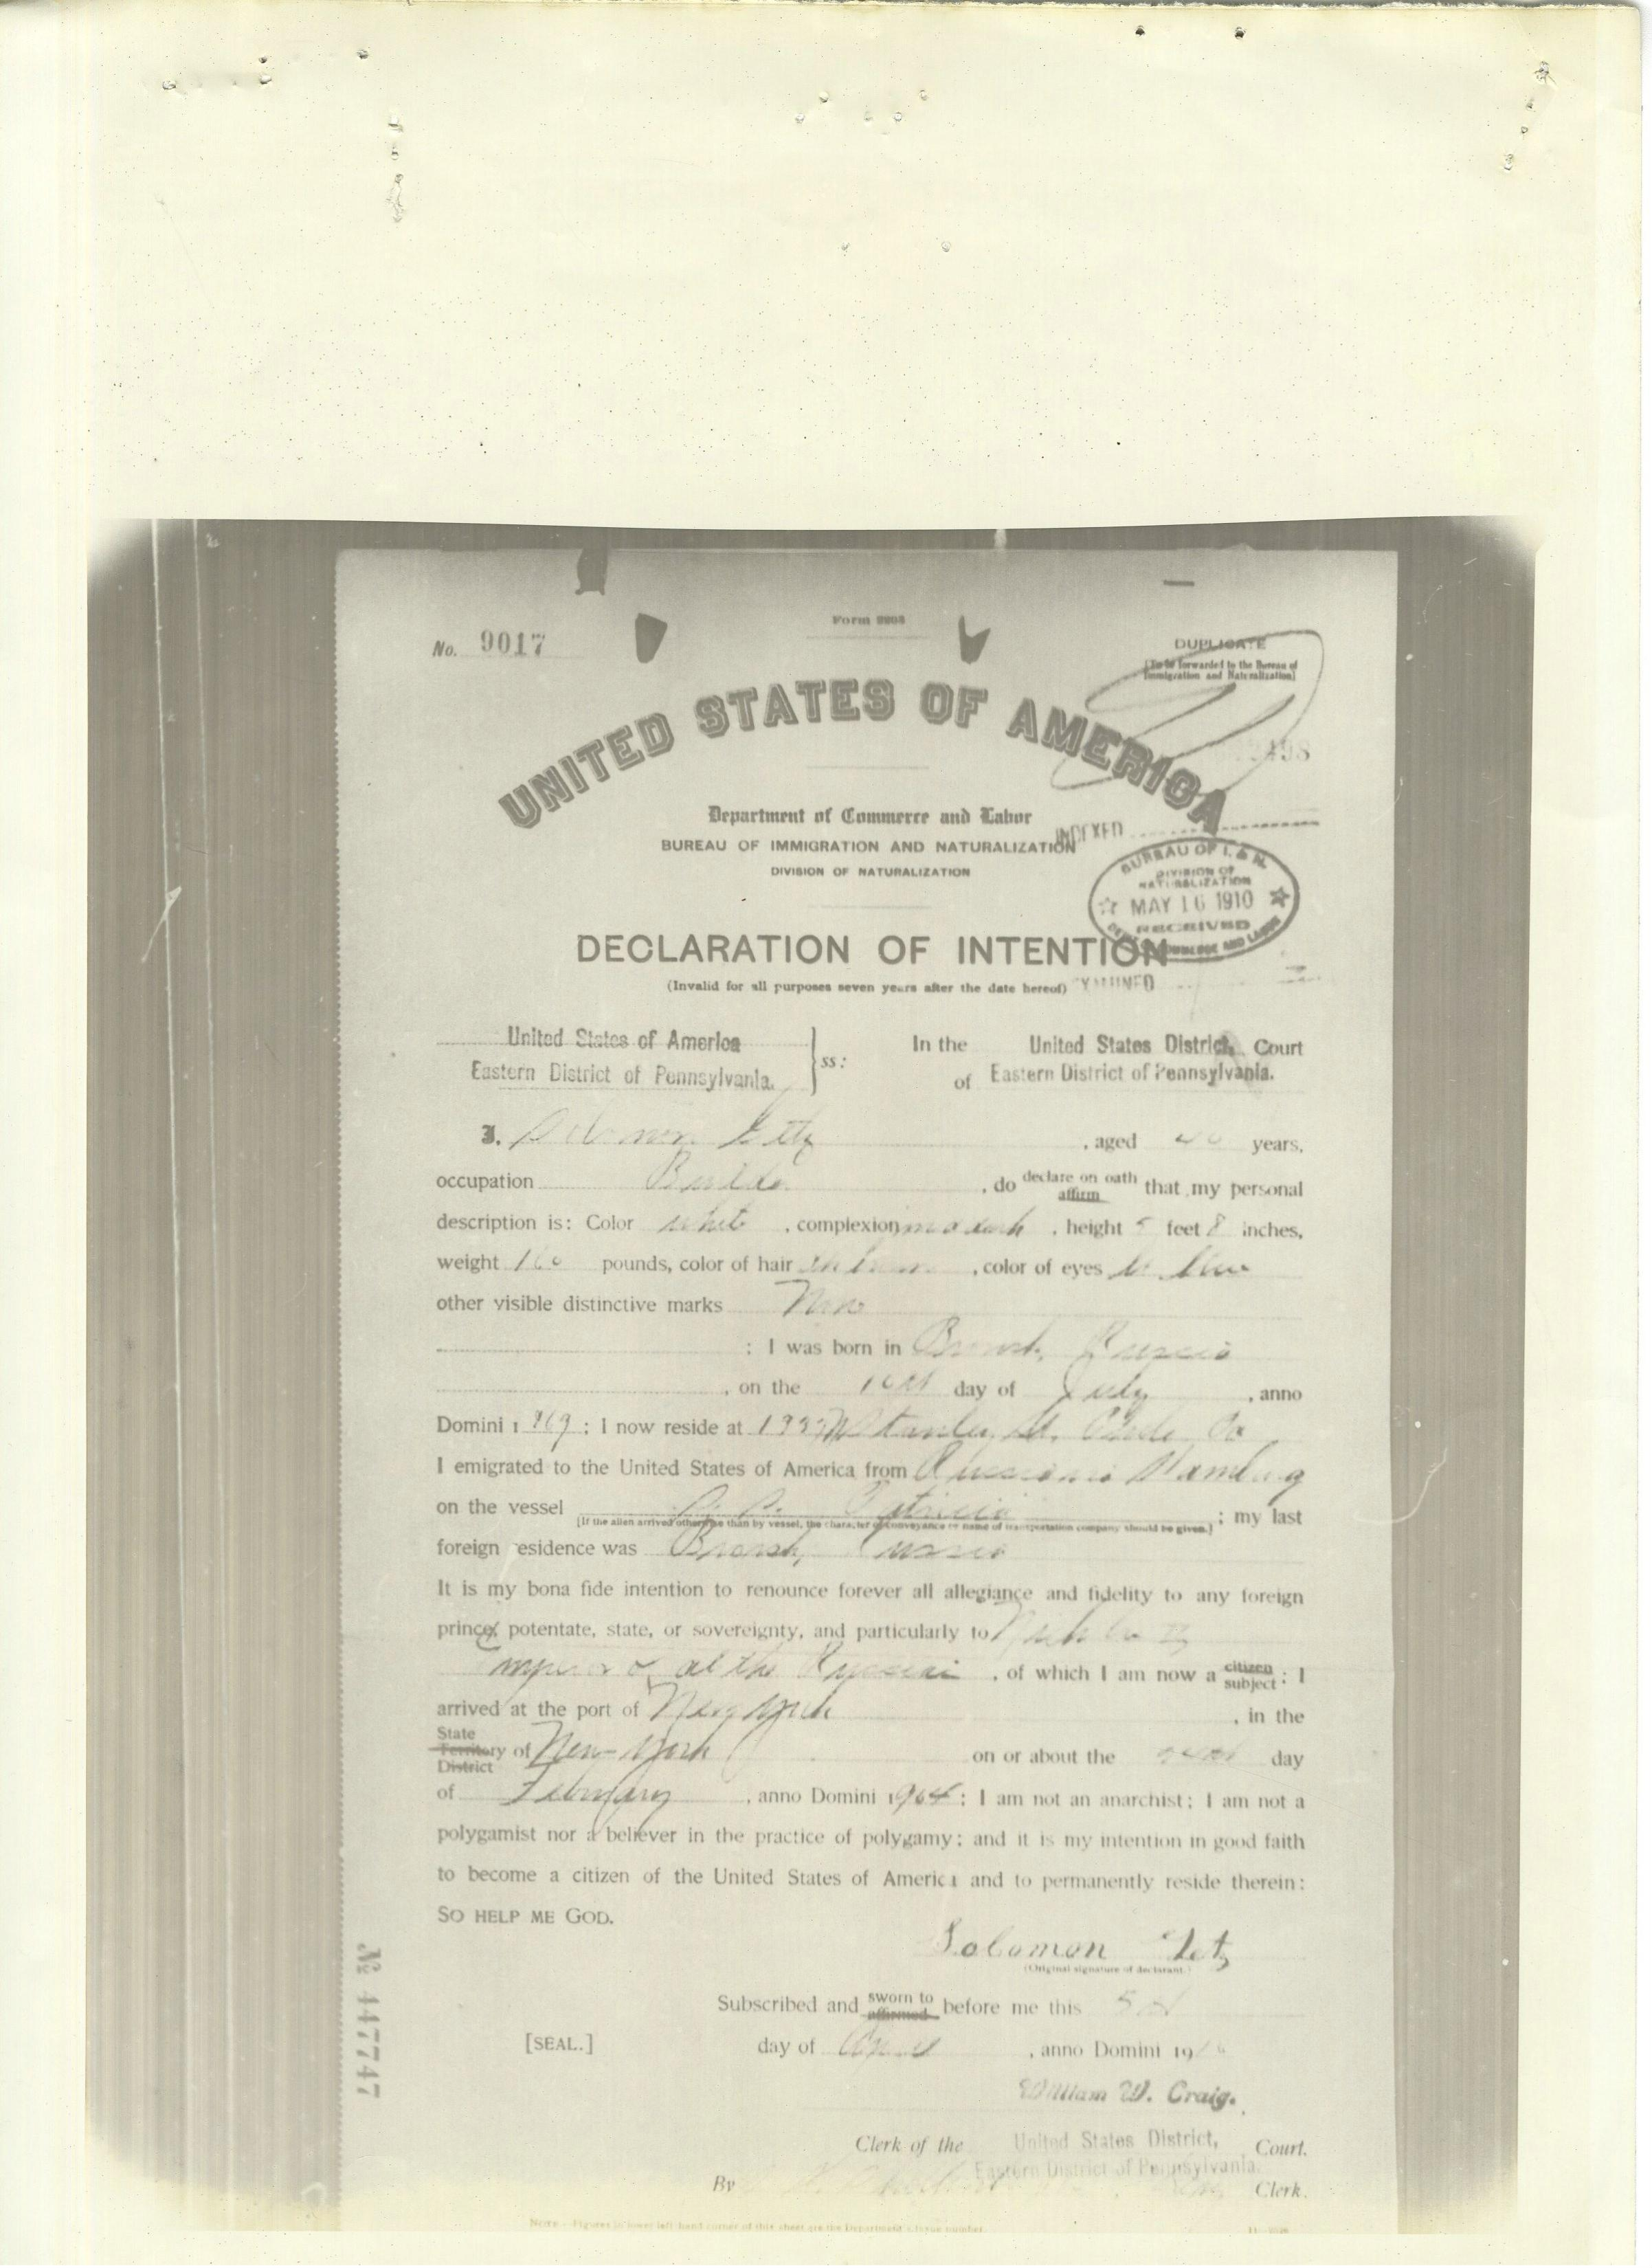 Form 2203
No. 9017
DUPLICATE
[To be forwarded to the Bureau of
Immigration and Naturalization]
UNITED STATES OF AMERICA
2498
Department of Commerce and Labor
INDEXED
BUREAU OF IMMIGRATION AND NATURALIZATION
DIVISION OF NATURALIZATION
BUREAU OF I. & N.
DIVISION OF
NATURALIZATION
MAY 16 1910
RECEIVED
DEPT. COMMERCE AND LABOR
DECLARATION OF INTENTION
(Invalid for all purposes seven years after the date hereof)
EXAMINED
United States of America
Eastern District of Pennsylvania.
ss:
In the United States District, Court
of Eastern District of Pennsylvania.
I, Solomon, aged 40 years,
occupation Builder, do declare on oath affirm that my personal
description is: Color white, complexion, height 5 feet 8 inches,
weight 160 pounds, color of hair, color of eyes
other visible distinctive marks None
: I was born in Russia
, on the day of July, anno
Domini 1869; I now reside at Stanley St. Phila Pa
I emigrated to the United States of America from Hamburg
on the vessel S. S. Patricia; my last
[If the alien arrived otherwise than by vessel, the character of conveyance or name of transportation company should be given.]
foreign residence was Russia
It is my bona fide intention to renounce forever all allegiance and fidelity to any foreign
prince, potentate, state, or sovereignty, and particularly to Nicholas II
Emperor of all the, of which I am now a citizen subject; I
arrived at the port of New York, in the
State Territory District of New York on or about the day
of February, anno Domini 1904; I am not an anarchist; I am not a
polygamist nor a believer in the practice of polygamy; and it is my intention in good faith
to become a citizen of the United States of America and to permanently reside therein:
SO HELP ME GOD.
Solomon
(Original signature of declarant.)
Subscribed and sworn to affirmed before me this 5th
[SEAL.]
day of, anno Domini 1910
William W. Craig.
Clerk of the United States District, Court.
Eastern District of Pennsylvania.
By Clerk.
NOTE.—Figures in lower left-hand corner of this sheet are the Department's form number.
No 117747